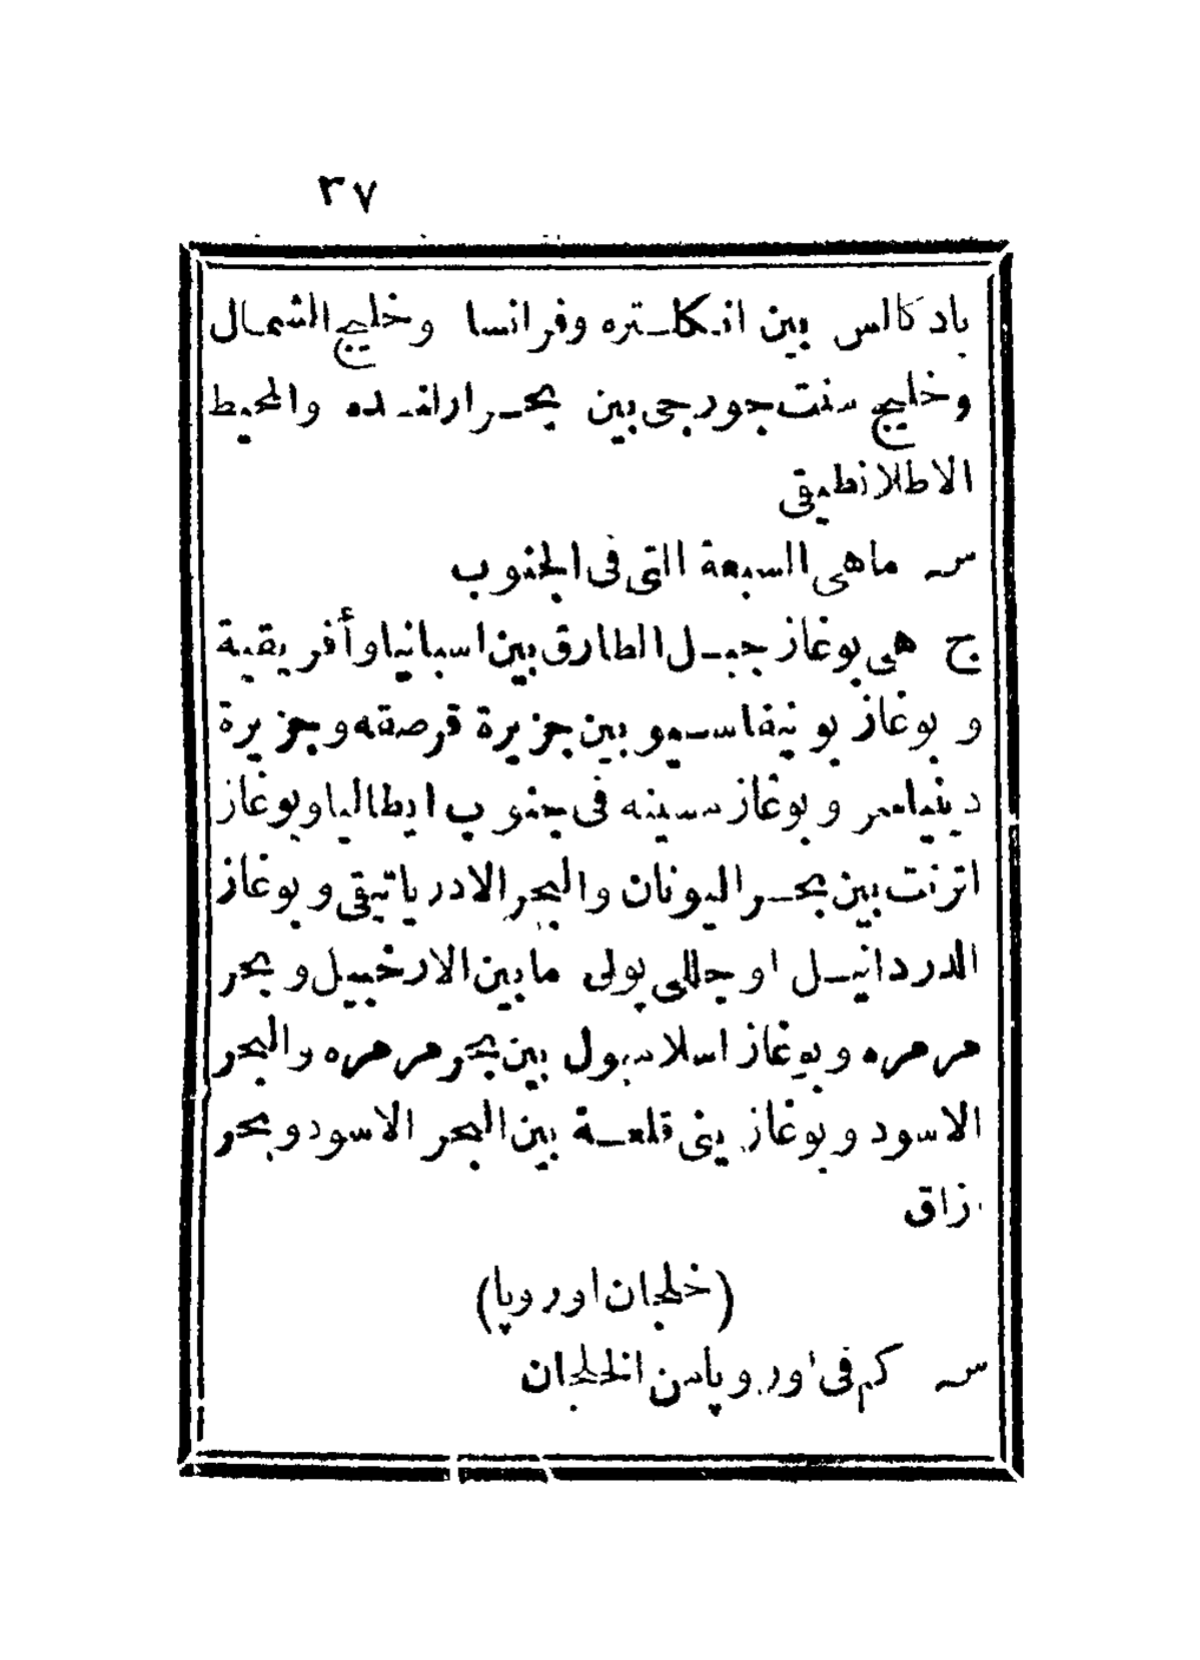 ٣٧
بادكالس بين انكلتره وفرانسا وخليج الشمال
وخليج سنت جورجى بين بحر ارلنده والمحيط
الاطلانطيقى
س ماهى السبعة التى فى الجنوب
ج هى بوغاز جبل الطارق بين اسبانيا وأفريقية
و بوغاز بونيفاسيو بين جزيرة قرصقه وجزيرة
وبوغاز مسينه فى جنوب ايطاليا وبوغاز
اترنت بين بحر اليونان والبحر الادرياتيقى وبوغاز
الدردانيل او جاللى پولى مابين الارخبيل وبحر
مرمره وبوغاز اسلامبول بين بحر مرمره والبحر
الاسود وبوغاز ينى قلعة بين البحر الاسود وبحر
ازاق
(خلجان اوروپا)
س كم فى اوروپا من الخلجان